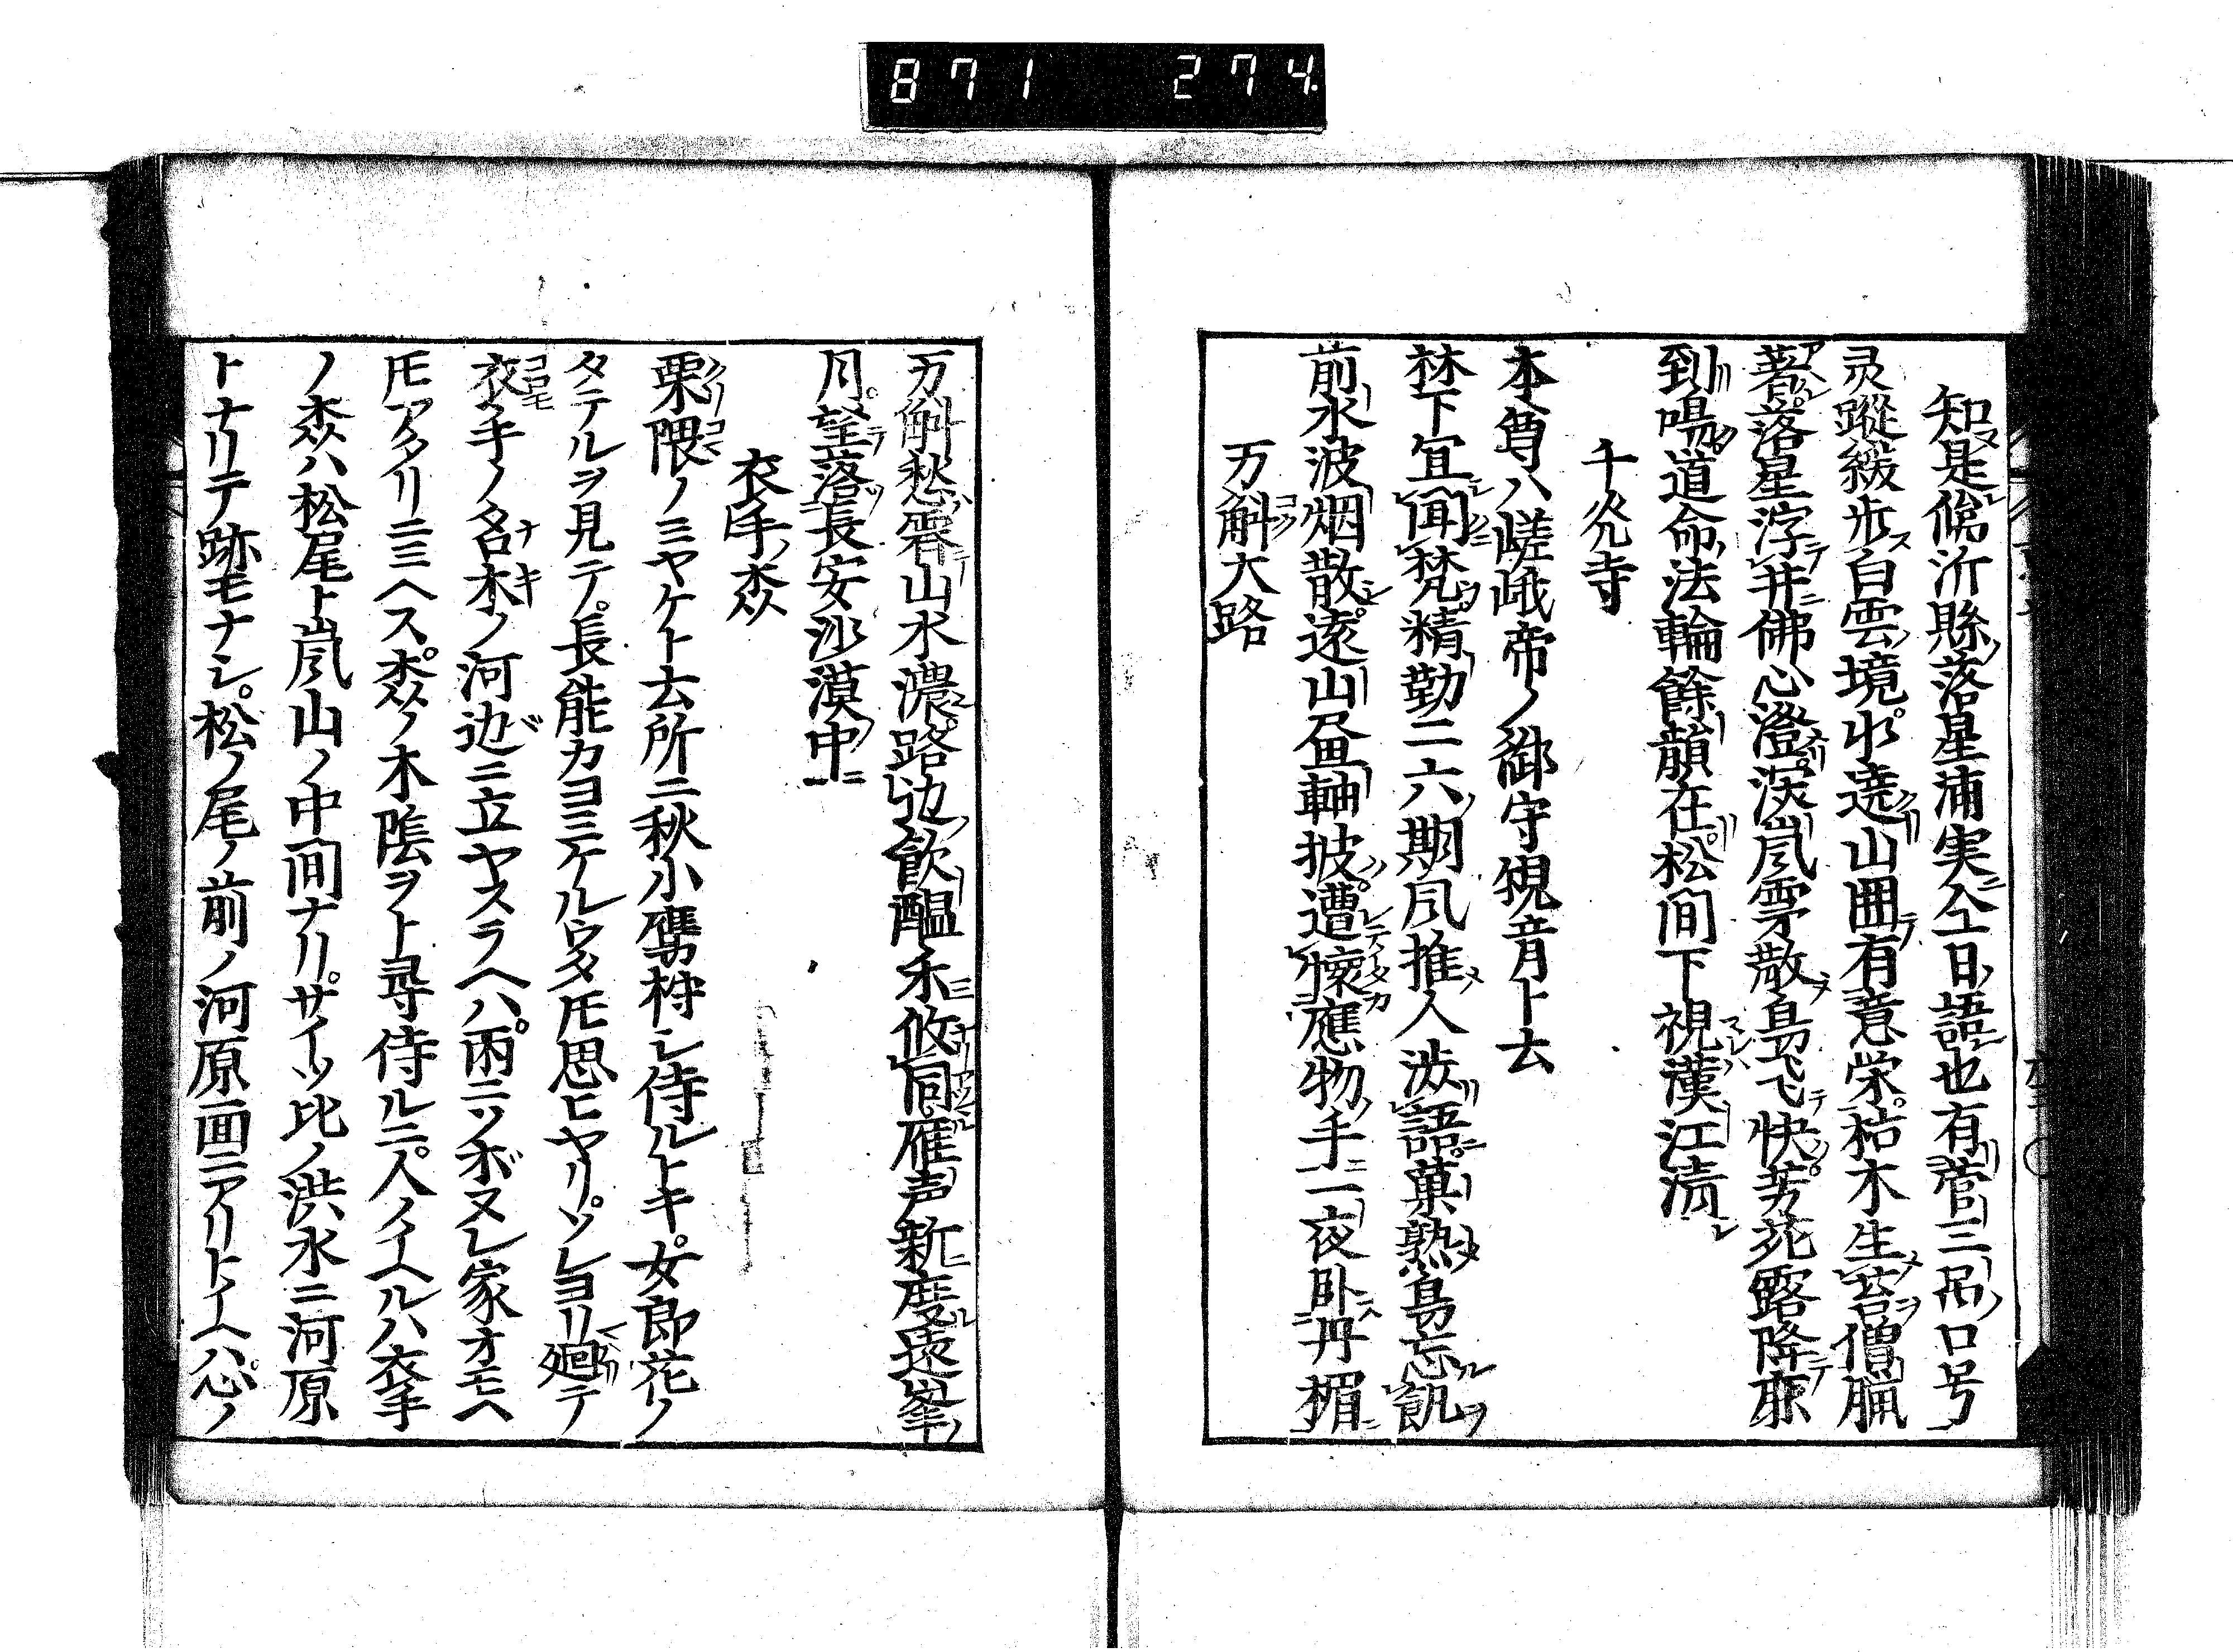 871 274
知是偹沂縣落星浦実仝日語也有菅三品口号
灵蹤緩歩白雲境水遶山囲有意栄枯木生苔僧臘
著落星浮井佛心澄淡嵐雾散鳥飞快芳苑露降
到鳴道命法輪餘韻在松間下視漢江清
千光寺
本尊ハ嵯峨帝ノ御守観音ト云
林下冝聞梵精勤二六期風推人汲語菓熟鳥忘飢
前水波烟散遠山昼軸披遭懐應物手一夜卧丹楣
万斛大路
万斛愁霽山水濃路边飲醞禾攸同雁声新度遠峯
月望落長安沙漠中
衣手ノ森
栗隈ノミヤケト云所ニ秋小鷹狩シ侍ルトキ女郎花ノ
タテルヲ見テ長能カヨミケルウタ𪜈思ヒヤリソレヨリ廻テ
衣手ノ名木ノ河辺ニ立ヤスラヘハ雨ニソボヌレ家オモヘ
𪜈アタリニミヘス森ノ木陰ヲト尋侍ルニ人ノイヘルハ衣手
ノ森ハ松尾ト嵐山ノ中間ナリサイツ比ノ洪水ニ河原
トナリテ跡モナシ松ノ尾ノ前ノ河原面ニアリトイヘハ心ノ